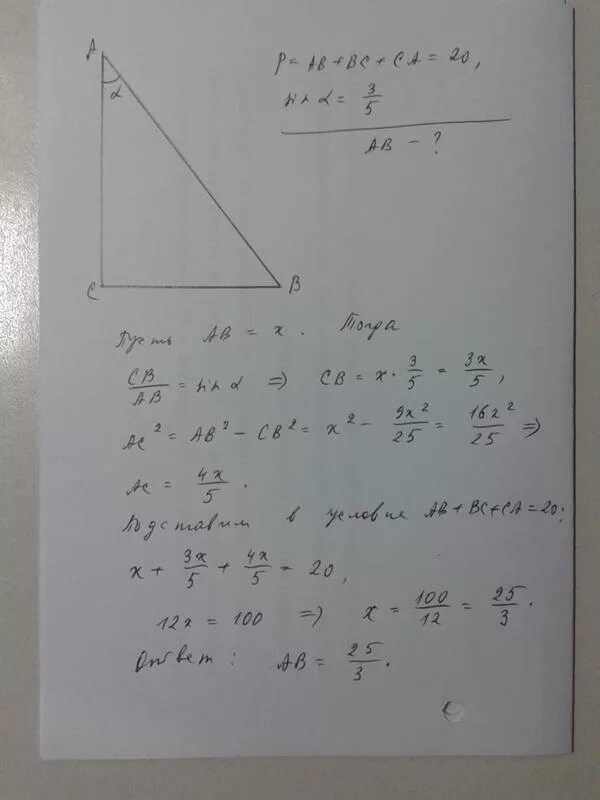 A
α
C
B
P = AB + BC + CA = 20,
sin α = 3/5
AB - ?
Пусть AB = x. Тогда
CB/AB = sin α ⇒ CB = x · 3/5 = 3x/5,
AC² = AB² - CB² = x² - 9x²/25 = 16x²/25 ⇒
AC = 4x/5.
Подставим в условие AB + BC + CA = 20;
x + 3x/5 + 4x/5 = 20,
12x = 100 ⇒ x = 100/12 = 25/3.
Ответ: AB = 25/3.